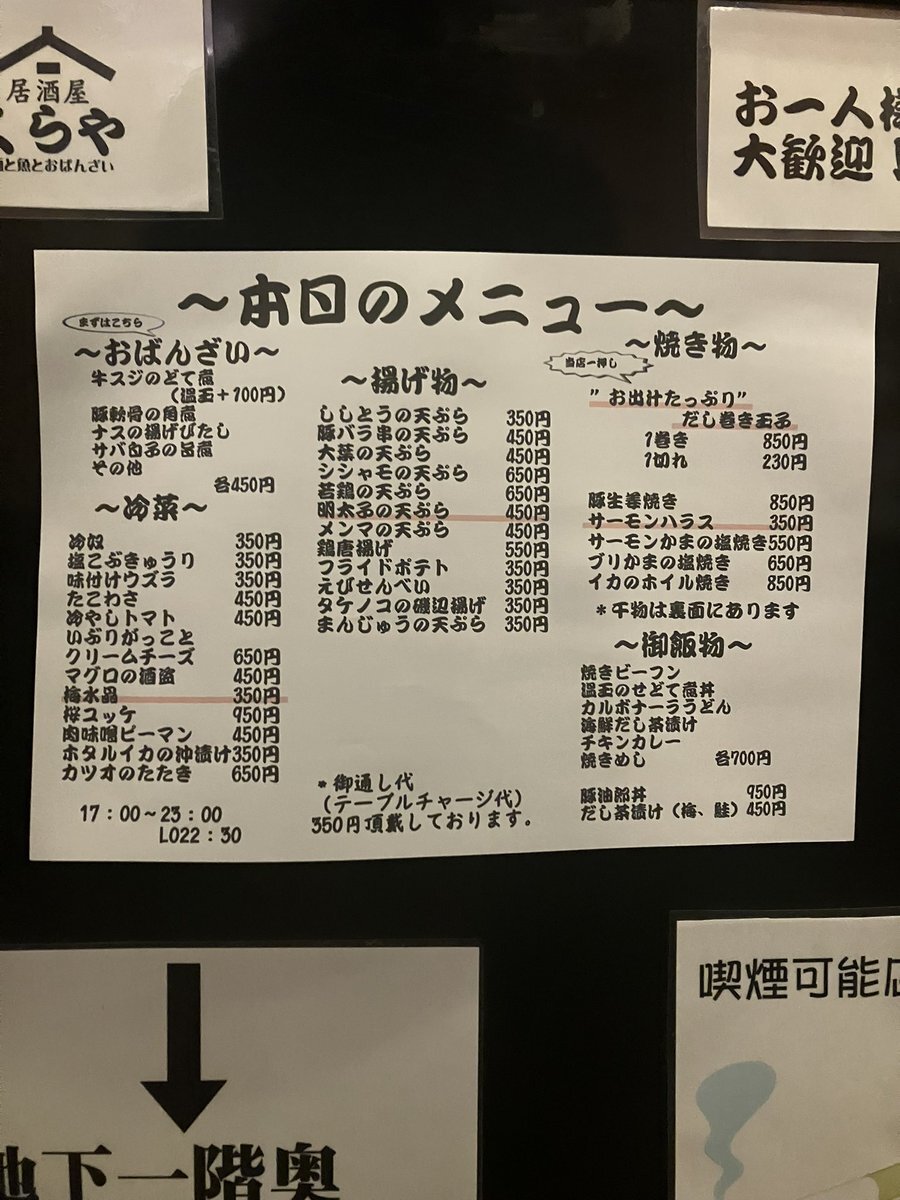 居酒屋
くらや
酒と魚とおばんざい
お一人様
大歓迎！
～本日のメニュー～
まずはこちら
～おばんざい～
牛スジのどて煮
（温玉＋100円）
豚軟骨の角煮
ナスの揚げびたし
サバ白子の旨煮
その他
各450円
～冷菜～
冷奴 350円
塩こぶきゅうり 350円
味付けウズラ 350円
たこわさ 450円
冷やしトマト 450円
いぶりがっこと
クリームチーズ 650円
マグロの酒盗 450円
梅水晶 350円
桜ユッケ 950円
肉味噌ピーマン 450円
ホタルイカの沖漬け 350円
カツオのたたき 650円
17：00～23：00
LO22：30
～揚げ物～
ししとうの天ぷら 350円
豚バラ串の天ぷら 450円
大葉の天ぷら 450円
シシャモの天ぷら 650円
若鶏の天ぷら 650円
明太子の天ぷら 450円
メンマの天ぷら 450円
鶏唐揚げ 550円
フライドポテト 350円
えびせんべい 350円
タケノコの磯辺揚げ 350円
まんじゅうの天ぷら 350円
＊御通し代
（テーブルチャージ代）
350円頂戴しております。
～焼き物～
当店一押し
”お出汁たっぷり”
だし巻き玉子
1巻き 850円
1切れ 230円
豚生姜焼き 850円
サーモンハラス 350円
サーモンかまの塩焼き 550円
ブリかまの塩焼き 650円
イカのホイル焼き 850円
＊干物は裏面にあります
～御飯物～
焼きビーフン
温玉のせどて煮丼
カルボナーラうどん
海鮮だし茶漬け
チキンカレー
焼きめし 各700円
豚油郎丼 950円
だし茶漬け（梅、鮭） 450円
地下一階奥
喫煙可能店